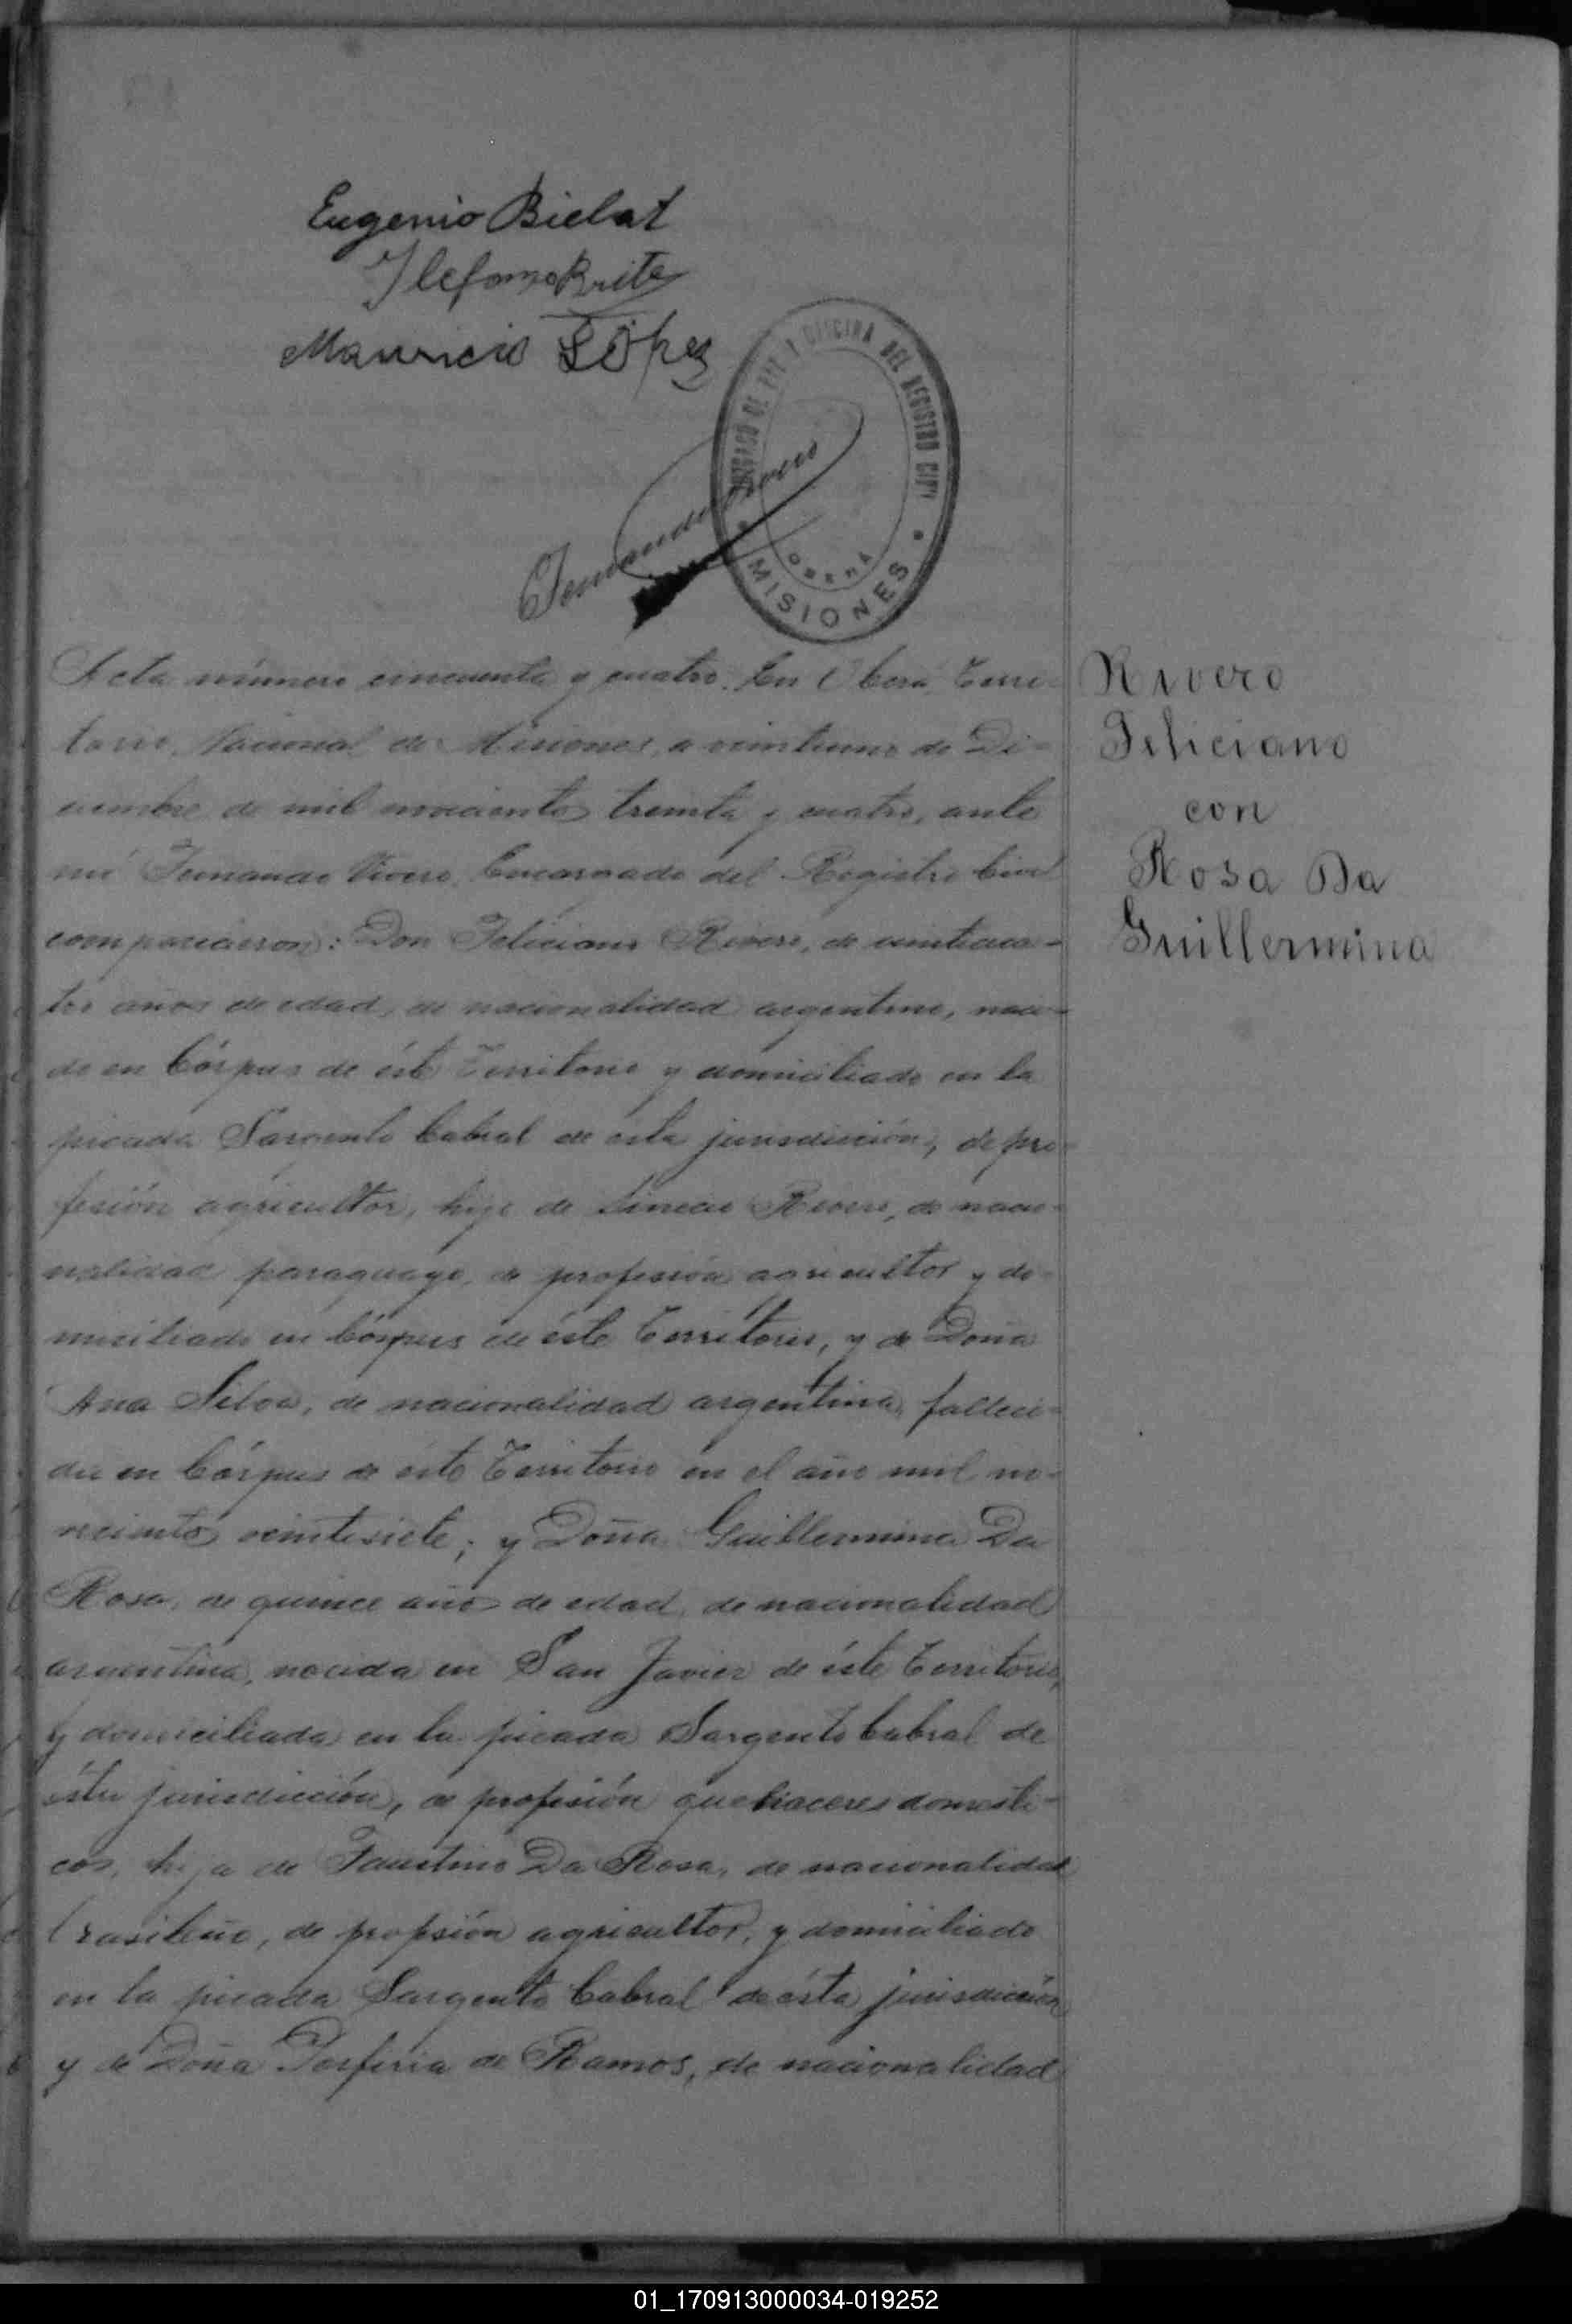 Eugenio Bielat
Ilefonso Brite
Mauricio López
JUZGADO DE PAZ Y OFICINA DEL REGISTRO CIVI
OBERÁ
MISIONES
Fernando Vivero
Acta número cincuenta y cuatro. En Oberá Terri-
torio Nacional de Misiones, a veintiuno de Di-
ciembre de mil novecientos treinta y cuatro, ante
mí Fernando Vivero, Encargado del Registro Civil
comparecieron: Don Feliciano Rivero, de veinticua-
tro años de edad, de nacionalidad argentino, naci-
do en Córpus de éste Territorio y domiciliado en la
picada Sargento Cabral de esta jurisdicción, de pro-
fesión agricultor, hijo de Rivero, de nacio-
nalidad paraguayo, de profesión agricultor y do-
miciliado en Córpus de éste Territorio, y de Doña
Ana Silva, de nacionalidad argentina, falleci-
da en Córpus de éste Territorio en el año mil no-
vecientos veintisiete; y Doña Guillermina Da
Rosa, de quince años de edad, de nacionalidad
argentina, nacida en San Javier de éste Territorio,
y domiciliada en la picada Sargento Cabral de
ésta jurisdicción, de profesión quehaceres domésti-
cos, hija de Faustino Da Rosa, de nacionalidad
brasileño, de profesión agricultor, y domiciliado
en la picada Sargento Cabral de ésta jurisdicción
y de Doña Porfiria de Ramos, de nacionalidad
Rivero
Feliciano
con
Rosa Da
Guillermina
01_170913000034-019252